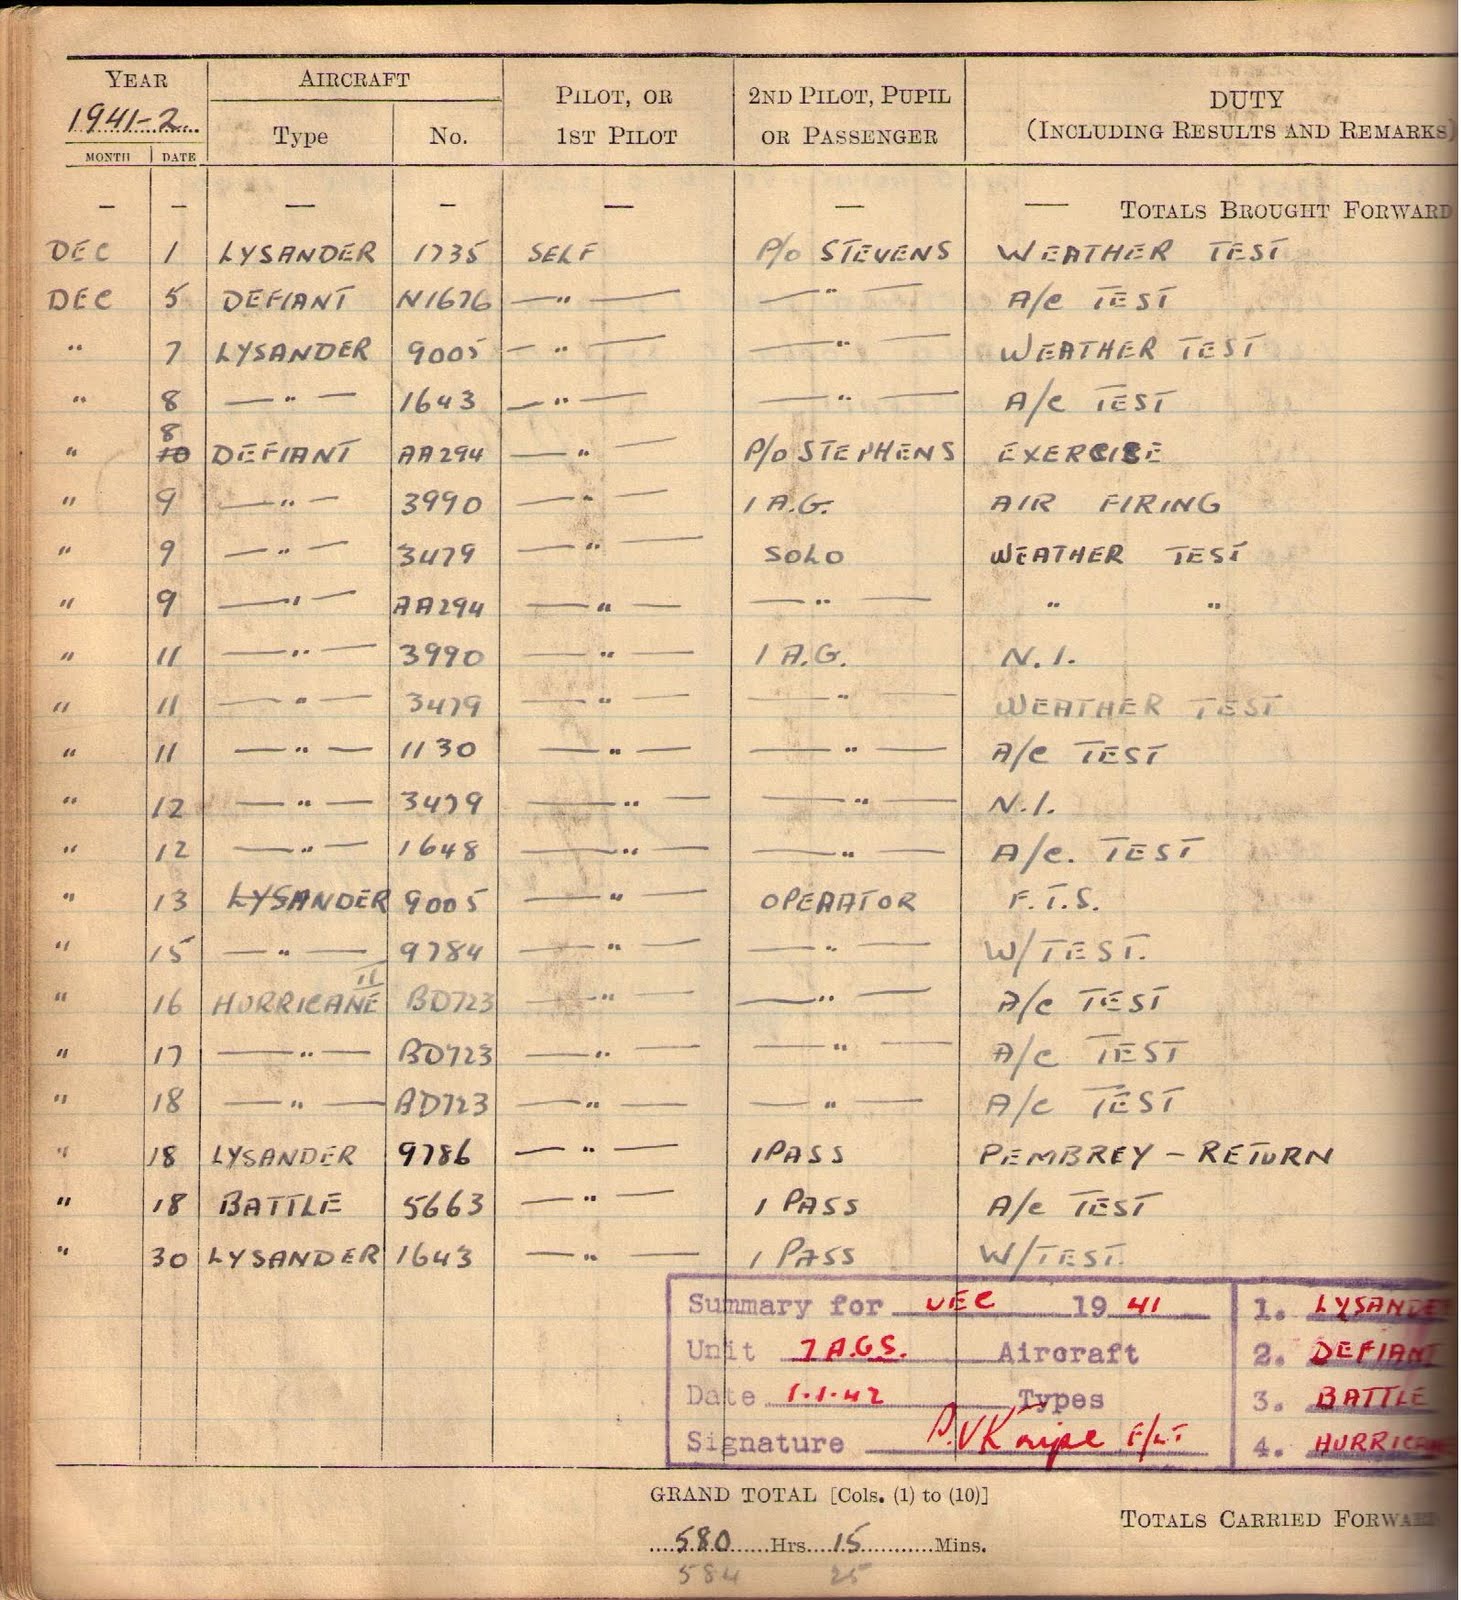 YEAR AIRCRAFT PILOT, OR 2ND PILOT, PUPIL DUTY
1941-2 Type No. 1ST PILOT OR PASSENGER (INCLUDING RESULTS AND REMARKS)
MONTH DATE
— — — — — — — TOTALS BROUGHT FORWARD
DEC 1 LYSANDER 1735 SELF P/O STEVENS WEATHER TEST
DEC 5 DEFIANT N1676 —"— —"— A/C TEST
" 7 LYSANDER 9005 —"— —"— WEATHER TEST
" 8 —"— 1643 —"— —"— A/C TEST
" 8 10 DEFIANT AA294 —"— P/O STEPHENS EXERCISE
" 9 —"— 3990 —"— 1 A.G. AIR FIRING
" 9 —"— 3479 —"— SOLO WEATHER TEST
" 9 —"— AA294 —"— —"— " "
" 11 —"— 3990 —"— 1 A.G. N.I.
" 11 —"— 3479 —"— —"— WEATHER TEST
" 11 —"— 1130 —"— —"— A/C TEST
" 12 —"— 3479 —"— —"— N.I.
" 12 —"— 1648 —"— —"— A/C. TEST
" 13 LYSANDER 9005 —"— OPERATOR F.T.S.
" 15 —"— 9784 —"— —"— W/TEST.
" 16 HURRICANE II BD723 —"— —"— A/C TEST
" 17 —"— BD723 —"— —"— A/C TEST
" 18 —"— BD723 —"— —"— A/C TEST
" 18 LYSANDER 9786 —"— 1 PASS PEMBREY – RETURN
" 18 BATTLE 5663 —"— 1 PASS A/C TEST
" 30 LYSANDER 1643 —"— 1 PASS W/TEST.
Summary for DEC 19 41 1. LYSANDE
Unit 7 A.G.S. Aircraft 2. DEFIANT
Date 1.1.42 Types 3. BATTLE
Signature F/LT 4. HURRICAN
GRAND TOTAL [Cols. (1) to (10)]
TOTALS CARRIED FORWARD
580 Hrs 15 Mins.
584 25